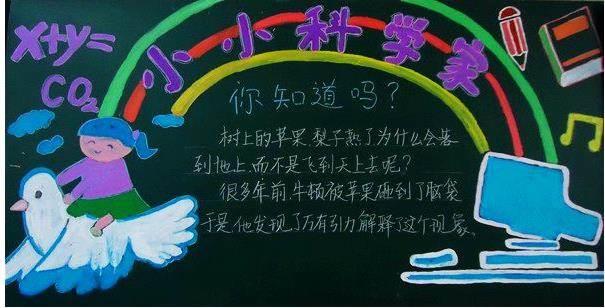 x+y=
CO2
小小科学家
你知道吗？
树上的苹果、梨子熟了为什么会落
到地上，而不是飞到天上去呢？
很多年前，牛顿被苹果碰到了脑袋
于是，他发现了万有引力解释了这个现象。